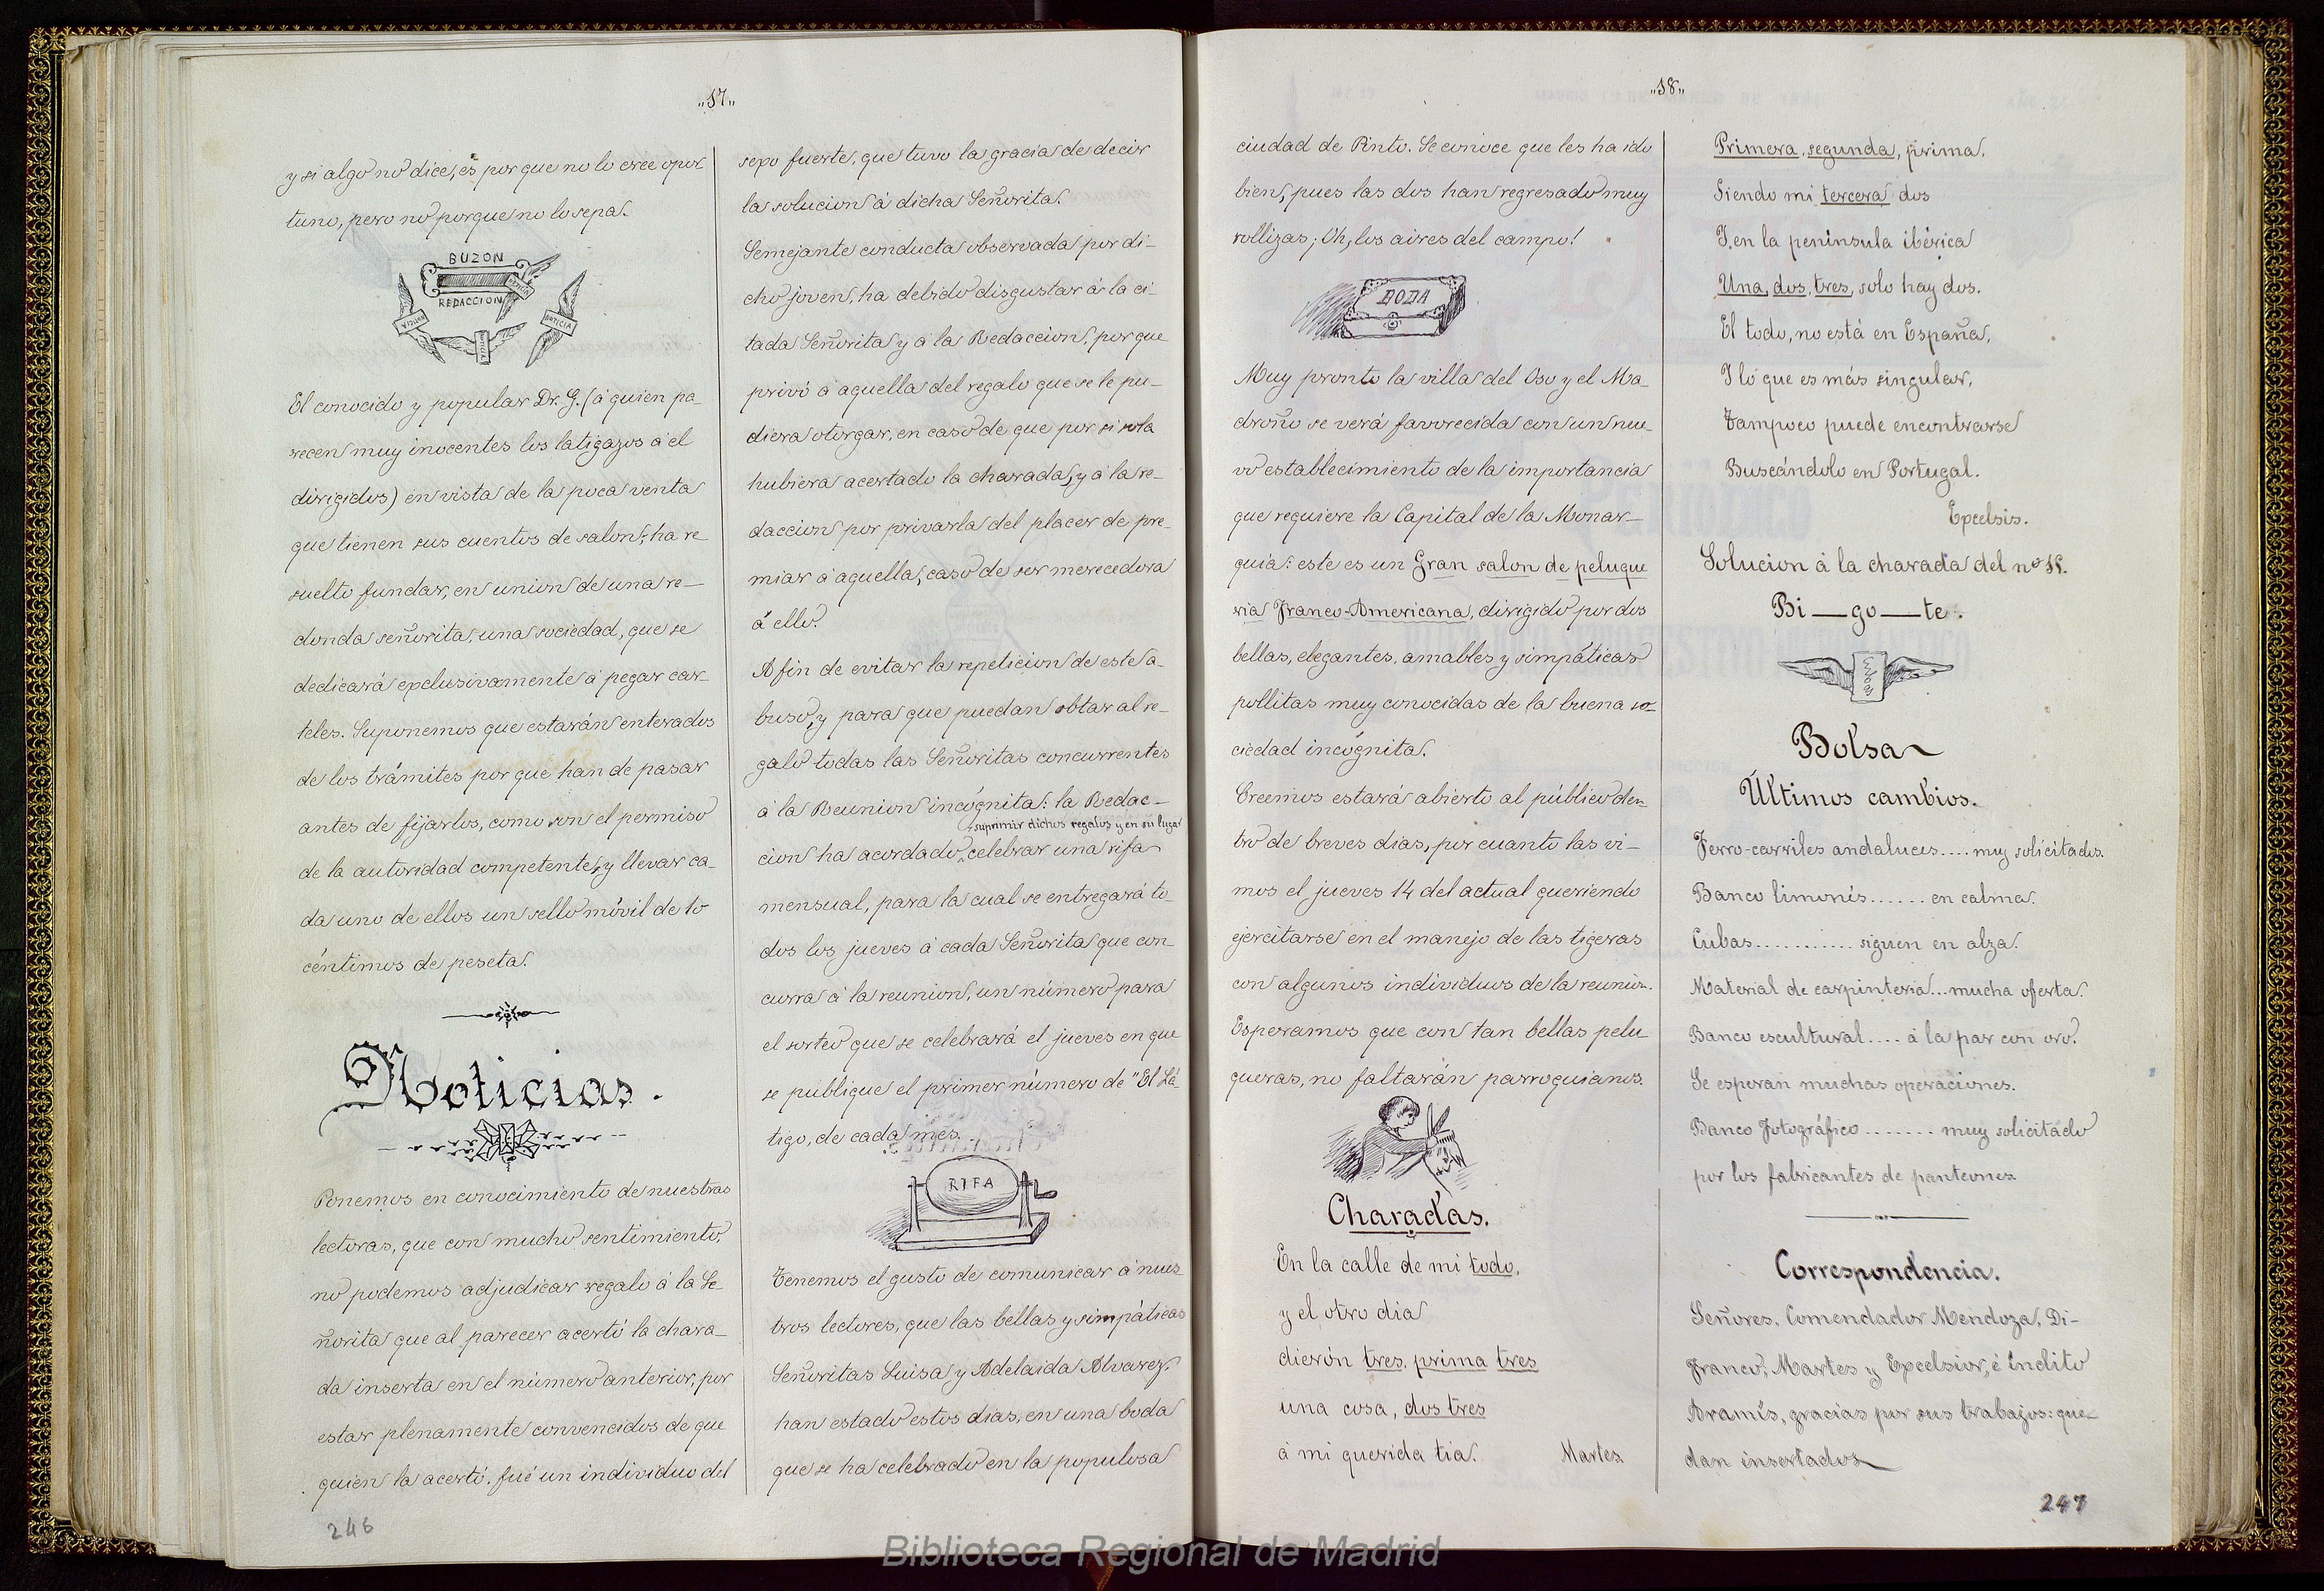 „17„
y si algo no dice, es porque no lo cree opor
tuno, pero no porque no lo sepa.
BUZON
REDACCION
NOTICIA
El conocido y popular Dr. G. (á quien pa-
recen muy inocentes los latigazos á él
dirigidos) en vista de la poca venta
que tienen sus cuentos de salon, ha re
suelto fundar, en union de una re-
donda señorita, una sociedad, que se
dedicará exclusivamente á pegar car-
teles. Suponemos que estarán enterados
de los trámites por que han de pasar
antes de fijarlos, como son el permiso
de la autoridad competente, y llevar ca-
da uno de ellos un sello móvil de 10
céntimos de peseta.
Noticias.
Ponemos en conocimiento de nuestras
lectoras, que con mucho sentimiento,
no podemos adjudicar regalo á la Se-
ñorita que al parecer acertó la chara-
da inserta en el número anterior, por
estar plenamente convencidos de que
quien la acertó, fué un individuo del
246
sexo fuerte, que tuvo la gracia de decir
la solucion á dicha Señorita.
Semejante conducta observada por di-
cho joven, ha debido disgustar á la ci-
tada Señorita y á la Redaccion, porque
privó á aquella del regalo que se le pu-
diera otorgar, en caso de que por si sola
hubiera acertado la charada, y á la re-
daccion por privarla del placer de pre-
miar á aquella, caso de ser merecedora
á ello.
A fin de evitar la repeticion de este a-
buso, y para que puedan obtar al re-
galo todas las Señoritas concurrentes
á la Reunion incógnita: la Redac-
suprimir dichos regalos y en su lugar
cion ha acordado celebrar una rifa
mensual, para la cual se entregará to-
dos los jueves á cada Señorita que con-
curra á la reunion, un número para
el sorteo que se celebrará el jueves en que
se publique el primer número de "El Lá-
tigo, de cada mes.
RIFA
Tenemos el gusto de comunicar á nues
tros lectores, que las bellas y simpáticas
Señoritas Luisa y Adelaida Alvarez,
han estado estos dias, en una boda
que se ha celebrado en la populosa
„18„
ciudad de Pinto. Se conoce que les ha ido
bien, pues las dos han regresado muy
rollizas; Oh, los aires del campo!
BODA
Muy pronto la villa del Oso y el Ma-
droño se verá favorecida con un nue-
vo establecimiento de la importancia
que requiere la Capital de la Monar-
quía: este es un Gran salon de peluque
ria Franco-Americana, dirigido por dos
bellas, elegantes, amables y simpáticas
pollitas muy conocidas de la buena so-
ciedad incógnita.
Creemos estará abierto al público den-
tro de breves dias, por cuanto las vi-
mos el jueves 14 del actual queriendo
ejercitarse en el manejo de las tigeras
con algunos individuos de la reunion.
Esperamos que con tan bellas pelu
queras, no faltarán parroquianos.
Charadas.
En la calle de mi todo,
y el otro dia
dieron tres, prima tres
una cosa, dos tres
á mi querida tia.
Martes
Primera, segunda, prima,
Siendo mi tercera dos
Y en la península ibérica
Una, dos, tres, solo hay dos.
El todo, no está en España,
Y lo que es más singular,
Tampoco puede encontrarse
Buscándolo en Portugal.
Excelsis.
Solucion á la charada del nº 15.
Bi—go—te.
Bolsa
Últimos cambios.
Ferro-carriles andaluces.... muy solicitados.
Banco limonés...... en calma.
Cubas............ siguen en alza.
Material de carpinteria... mucha oferta.
Banco escultural.... á la par con oro.
Se esperan muchas operaciones.
Banco Fotográfico....... muy solicitado
por los fabricantes de panteones
Correspondencia.
Señores. Comendador Mendoza, Di-
franco, Martes y Excelsior, é ínclito
Aramís, gracias por sus trabajos: que-
dan insertados
247
Biblioteca Regional de Madrid